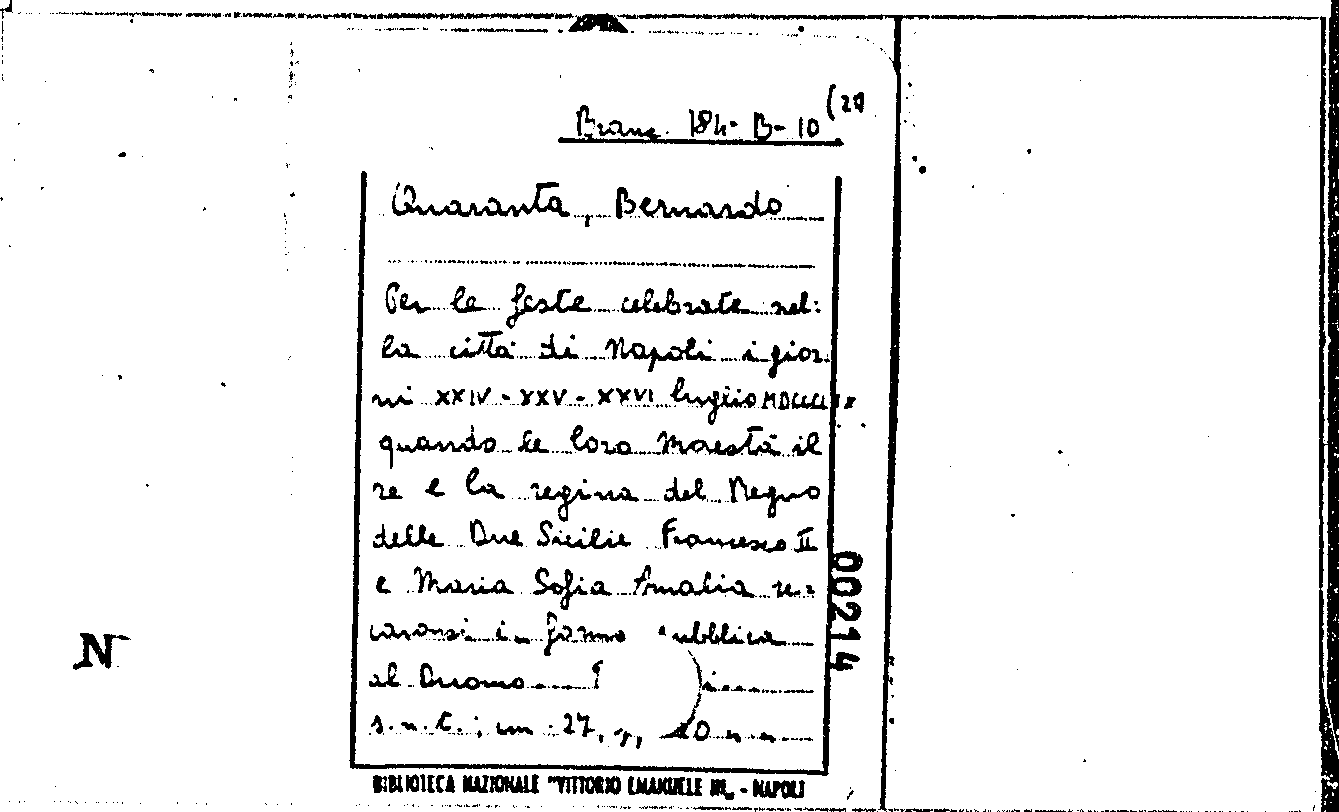 Branc. 184- B- 10 (20
Quaranta, Bernardo
Per le feste celebrate nel:
la città di Napoli i gior
ni XXIV - XXV - XXVI luglio MDCCCLIX
quando le loro Maestà il
re e la regina del Regno
delle Due Sicilie Francesco II
e Maria Sofia Amalia re=
caronsi in forma pubblica
al Duomo
s.n.t.; cm 27,
00214
N
BIBLIOTECA NAZIONALE "VITTORIO EMANUELE III" - NAPOLI